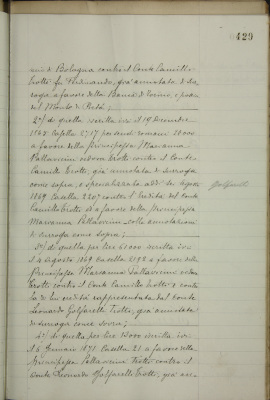 429
ni di Bologna contro il Conte Camillo
Trotti fu Ferdinando, già annotata di sur-
roga a favore della Banca di Torino, e poscia
del Monte di Pietà;
2º/ di quella iscritta ivi il 19 Decembre
1867 Casella 2717 per scudi romani
a favore della Principessa Marianna
Pallavicini vedova Trotti contro il Conte
Camillo Trotti, già annotata di surroga
come sopra, e specializzata addì Agosto
1869 Casella 2207 contro l'Eredità del Conte
Camillo Trotti ed a favore della Principessa
Marianna Pallavicini colle annotazioni
di surroga come sopra;
3º/ di quella per lire 61000 iscritta ivi
il 4 Agosto 1869 Casella a favore della
Principessa Marianna Pallavicini vedova
Trotti contro il Conte Camillo Trotti e contro
la di lui eredità rappresentata dal Conte
Leonardo Golfarelli Trotti, già annotata
di surroga come sovra;
4º/ di quella per lire 8000 iscritta ivi
il 8 Gennaio 1871 Casella 21 a favore della
Principessa Pallavicini Trotti contro il
Conte Leonardo Golfarelli Trotti, già an-
Golfarelli